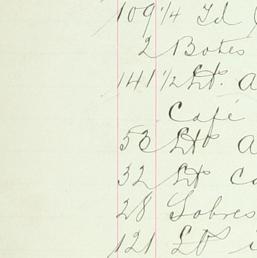 109 1/4 Id
2 Botes
141 1/2 Lts. a
Café
53 Lts a
32 Lts ca
28 Sobres
121 Lts i